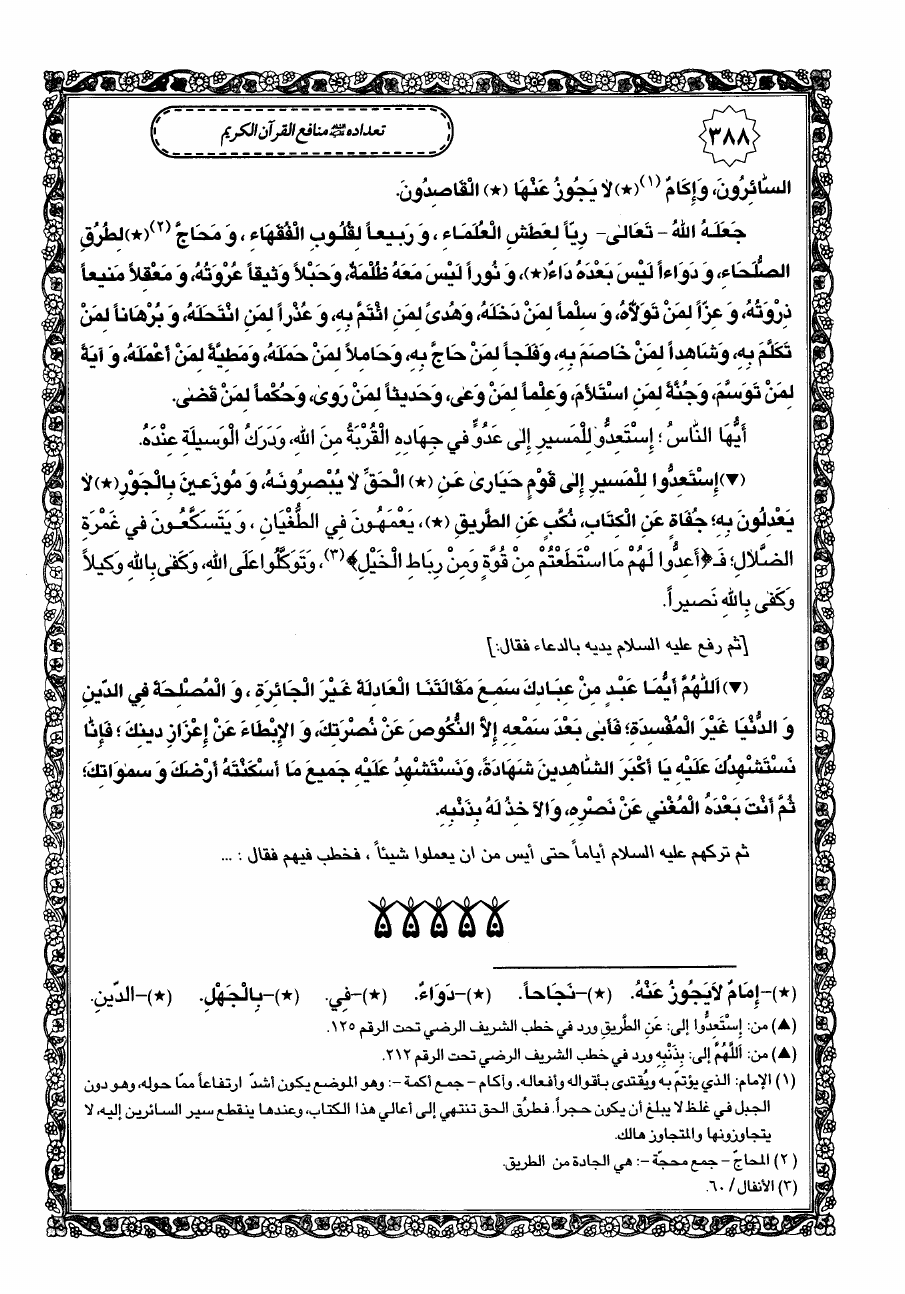 ٣٨٨
تعداده ﷺ منافع القرآن الكريم
السَّائِرُونَ، وَإِكَامٌ (١)(★) لاٰ يَجُوزُ عَنْهَا (★) الْقَاصِدُونَ.
جَعَلَهُ اللهُ - تَعَالىٰ- رِيّاً لِعَطَشِ الْعُلَمَاءِ ، وَ رَبِيعاً لِقُلُوبِ الْفُقَهَاءِ ، وَ مَحَاجَّ (٢)(★) لِطُرُقِ
الصُّلَحَاءِ، وَ دَوَاءاً لَيْسَ بَعْدَهُ دَاءٌ(★)، وَ نُوراً لَيْسَ مَعَهُ ظُلْمَةٌ، وَحَبْلاً وَثيقاً عُرْوَتُهُ، وَ مَعْقِلاً مَنيعاً
ذِرْوَتُهُ، وَ عِزّاً لِمَنْ تَوَلاَّهُ، وَ سِلْماً لِمَنْ دَخَلَهُ، وَهُدىً لِمَنِ ائْتَمَّ بِهِ، وَ عُذْراً لِمَنِ انْتَحَلَهُ، وَ بُرْهَاناً لِمَنْ
تَكَلَّمَ بِهِ، وَشَاهِداً لِمَنْ خَاصَمَ بِهِ، وَفَلَجاً لِمَنْ حَاجَّ بِهِ، وَحَامِلاً لِمَنْ حَمَلَهُ، وَمَطِيَّةً لِمَنْ أَعْمَلَهُ، وَ آيَةً
لِمَنْ تَوَسَّمَ، وَجُنَّةً لِمَنِ اسْتَلأَمَ، وَعِلْماً لِمَنْ وَعىٰ، وَحَديثاً لِمَنْ رَوىٰ، وَحُكْماً لِمَنْ قَضىٰ.
أَيُّهَا النَّاسُ ؛ اِسْتَعِدُّوا لِلْمَسيرِ إِلىٰ عَدُوٍّ في جِهَادِهِ الْقُرْبَةُ مِنَ اللهِ، وَدَرَكُ الْوَسيلَةِ عِنْدَهُ.
(▼) اِسْتَعِدُّوا لِلْمَسيرِ إِلىٰ قَوْمٍ حَيَارىٰ عَنِ (★) الْحَقِّ لاٰ يُبْصِرُونَهُ، وَ مُوزَعينَ بِالْجَوْرِ(★) لاٰ
يَعْدِلُونَ بِهِ؛ جُفَاةٍ عَنِ الْكِتَابِ، نُكَّبٍ عَنِ الطَّريقِ (★)، يَعْمَهُونَ فِي الطُّغْيَانِ ، وَ يَتَسَكَّعُونَ في غَمْرَةِ
الضَّلاَلِ؛ فَـ﴿أَعِدُّوا لَهُمْ مَا اسْتَطَعْتُمْ مِنْ قُوَّةٍ وَمِنْ رِبَاطِ الْخَيْلِ﴾(٣)، وَتَوَكَّلُوا عَلَى اللهِ، وَكَفىٰ بِاللهِ وَكيلاً
وَكَفىٰ بِاللهِ نَصيراً.
[ثم رفع عليه السلام يديه بالدعاء فقال:]
(▼) اَللّٰهُمَّ أَيُّمَا عَبْدٍ مِنْ عِبَادِكَ سَمِعَ مَقَالَتَنَا الْعَادِلَةَ غَيْرَ الْجَائِرَةِ ، وَ الْمُصْلِحَةَ فِي الدّينِ
وَ الدُّنْيَا غَيْرَ الْمُفْسِدَةِ؛ فَأَبىٰ بَعْدَ سَمْعِهِ إِلاَّ النُّكُوصَ عَنْ نُصْرَتِكَ، وَ الإِبْطَاءَ عَنْ إِعْزَازِ دينِكَ ؛ فَإِنَّا
نَسْتَشْهِدُكَ عَلَيْهِ يَا أَكْبَرَ الشَّاهِدينَ شَهَادَةً، وَنَسْتَشْهِدُ عَلَيْهِ جَميعَ مَا أَسْكَنْتَهُ أَرْضَكَ وَ سَمٰوَاتِكَ؛
ثُمَّ أَنْتَ بَعْدَهُ الْمُغْني عَنْ نَصْرِهِ، وَالآخِذُ لَهُ بِذَنْبِهِ.
ثم تركهم عليه السلام أياماً حتى أيس من ان يعملوا شيئاً ، فخطب فيهم فقال : ...
(★)-إِمَامٌ لاَيَجُوزُ عَنْهُ. (★)-نَجَاحاً. (★)-دَوَاءٌ. (★)-فِي. (★)-بِالْجَهْلِ. (★)-الدّينِ.
(▲) من: إِسْتَعِدُّوا إلى: عَنِ الطَّرِيقِ ورد في خطب الشريف الرضي تحت الرقم ١٢٥.
(▲) من: اَللّٰهُمَّ إلى: بِذَنْبِهِ ورد في خطب الشريف الرضي تحت الرقم ٢١٢.
(١) الإمام: الذي يؤتمّ به ويُقتدى بأقواله وأفعاله. وأكام - جمع أكمة -: وهو الموضع يكون أشدّ ارتفاعاً ممّا حوله، وهو دون
الجبل في غلظ لا يبلغ أن يكون حجراً. فطرُق الحق تنتهي إلى أعالي هذا الكتاب، وعندها ينقطع سير السائرين إليه، لا
يتجاوزونها والمتجاوز هالك.
(٢) المحاجّ - جمع محجّة -: هي الجادة من الطريق.
(٣) الأنفال / ٦٠.